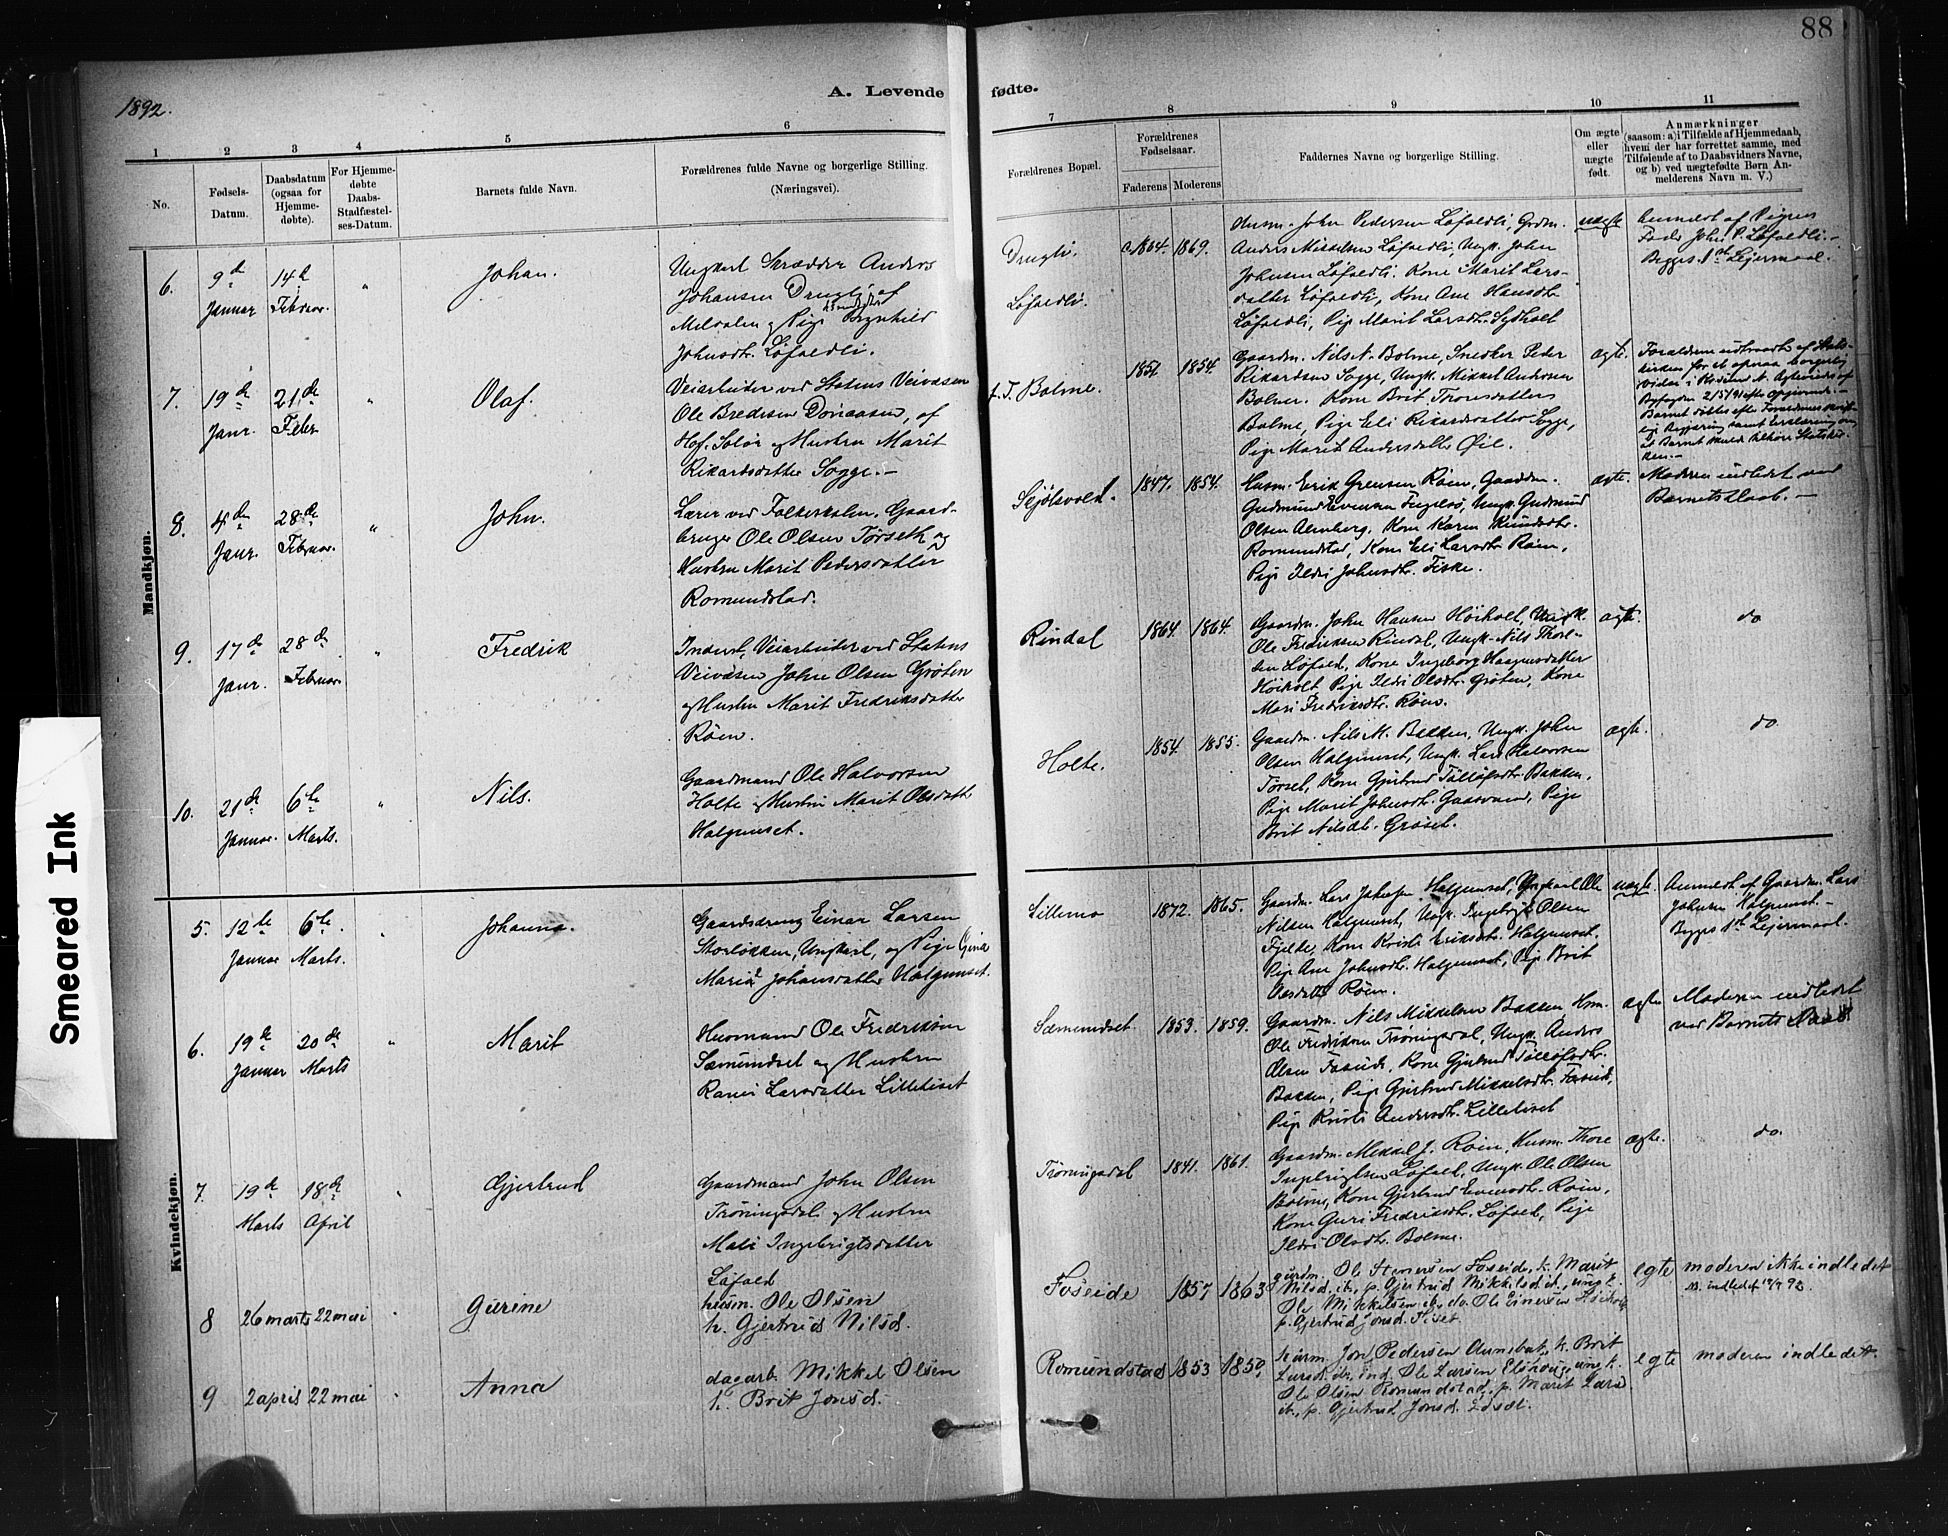 88
1892.
A. Levende fødte.
1 2 3 4 5 6 7 8 9 10 11
No.
Fødsels-
Datum.
Daabsdatum
(ogsaa for
Hjemme-
døbte).
For Hjemme-
døbte
Daabs-
Stadfæstel-
ses-Datum.
Barnets fulde Navn.
Forældrenes fulde Navne og borgerlige Stilling.
(Næringsvei).
Forældrenes Bopæl.
Forældrenes
Fødselsaar.
Faderens Moderens
Faddernes Navne og borgerlig Stilling.
Om ægte
eller
uægte
født.
Anmærkninger
(saasom: a) i Tilfælde af Hjemmedaab,
hvem der har forrettet samme, med
Tilføiende af to Daabsvidners Navne,
og b) ved uægtefødte Børn An-
melderens Navn m. V.)
Mandkjøn.
6. 9de Januar 14de Februar. " Johan.
Ungkarl Skrædder Anders
Johansen Drugli af
Meldalen og Pige Brynhild
Johnsdtr. Løfaldli.
Drugli.
Løfaldli.
1864. 1869.
Husm. John Pedersen Løfaldli, Grdm.
Anders Mikkelsen Løfaldli, Ungk. John
Johnsen Løfaldli. Kone Marit Lars-
datter Løfaldli, Kone Ane Hansdtr.
Løfaldli, Pige Marit Larsdtr. Sydholt
uægte
Anmeldt af Pigens
Fader John P. Løfaldli.-
Begges 1ste Leiermaal.
7. 19de Janr. 21de Febr. " Olaf.
Veiarbeider ved Statens Veivæsen
Ole Bredesen Donaasen, af
Hof. Solør og Hustru Marit
Rikardsdatter Sogge.-
t. T. Bolme.
1851. 1854.
Gaardm. Nils N. Bolme, Snedker Peder
Rikardsen Sogge, Ungk. Mikkel Andersen
Bolme. Kone Brit Thoresdatter
Bolme, Pige Eli Rikardsdatter Sogge,
Pige Marit Andersdatter Øie.
ægte.
Forældrene udtraadte af Stats-
kirken for at opnaa borgerlig
8. 4de Janr. 28de Februar. " John.
Lærer ved Folkeskolen, Gaard-
bruger Ole Olsen Tørseth og
Hustru Marit Pedersdatter
Romundstad.
Skjølsvold.
1847. 1854.
Husm. Erik Evensen Røen, Gaardm.
Gudmund Evensen Fuglsø, Ungk. Gudmund
Olsen Almberg. Kone Karen Knudsdtr.
Romundstad, Kone Eli Larsdtr. Røen,
Pige Ildri Johnsdtr. Fiske.
ægte.
Moderen indledet ved
Barnets Daab.-
9. 17de Janr. 28de Februar. " Fredrik
Inderst, Veiarbeider ved Statens
Veivæsen John Olsen Grøten
og Hustru Marit Fredriksdatter
Røen.
Rindal
1864. 1864.
Gaardm. John Hansen Høiholt, Ungk.
Ole Fredriksen Rindal, Ungk. Nils Thor-
sen Løfald, Kone Ingeborg Haagensdatter
Høiholt Pige Ildri Olsdtr. Grøten, Kone
Mari Fredriksdtr. Røen.
ægte.
do
10. 21de Januar. 6te Marts. " Nils.
Gaardmand Ole Halvorsen
Holte og Hustru Marit Olsdatter
Halgunset.
Holte.
1854. 1855.
Gaardm. Nils M. Bakken, Ungk. John
Olsen Halgunset, Ungk. Lars Halvorsen
Tørset, Kone Gjertrud Tølløfsdtr. Bakken,
Pige Marit Johnsdtr. Gaasvand, Pige
Brit Nilsdt. Grøset.
ægte.
do
Kvindekjøn.
5. 12te Januar 6te Marts. " Johanna.
Gaardsdreng Einar Larsen
Storløkken, Ungkarl, og Pige Gina
Maria Johansdatter Halgunset.
Lillemo
1872. 1865.
Gaardm. Lars Johnsen Halgunset, Ungkarl Ole
Nilsen Halgunset, Ungk. Ingebrigt Olsen
Fjelde, Kone Kristi Eriksdtr. Halgunset.
Pige Ane Johnsdtr. Halgunset, Pige Brit
Olsdatter Røen.
uægte.
Anmeldt af Gaardm. Lars
Johnsen Halgunset.-
Begges 1ste Leiermaal.
6. 19de Januar 20de Marts " Marit
Husmand Ole Fredriksen
Sæmundset og Hustru
Ranei Larsdatter Lilletiset
Sæmundset
1859. 1859.
Gaardm. Nils Mikkelsen Bakken Hsm.
Ole Fredriksen Trøningsdal, Ungk. Anders
Olsen Foseide, Kone Gjertrud Tølløfsdtr.
Bakken, Pige Gjertrud Mikkelsdtr. Foseide,
Pige Kristi Andersdtr. Lilletiset
ægte
Moderen indledet
ved Barnets Daab
7. 19de Marts 18de April " Gjertrud
Gaardmand John Olsen
Trøningsdal og Hustru
Mali Ingebrigtsdatter
Løfald
Trøningsdal
1841. 1861.
Gaardm. Mikkel J. Røen, Husm. Thore
Ingebrigtsen Løfald, Ungk. Ole Olsen
Bolme, Kone Gjertrud Evensdtr. Røen,
Kone Guri Fredriksdtr. Løfald, Pige
Ildri Olsdtr. Bolme.
ægte.
do.
8 26 marts 22 mai " Gurine
husm. Ole Olsen
h. Gjertrud Nilsd.
Foseide
1857 1863
gaardm. Ole Steinersen Foseide, k. Marit
Nilsd. ib., p. Gjertrud Mikkelsd. ib., ungk.
Ole Mikkelsen ib., do. Ole Einersen
p. Gjertrud Jonsd. Tiset.
egte
moderen ikke indledet
9 2 april 22 mai " Anna
dagarb. Mikkel Olsen
h. Brit Jonsd.
Romundstad
1853 1850
husm. Jon Pedersen, k. Brit
Larsd. ib., ind. Ole Larsen, ungk.
Ole Olsen Romundstad, p. Marit Larsd.
ib., p. Gjertrud Jonsd.
egte
moderen indledet
Smeared Ink